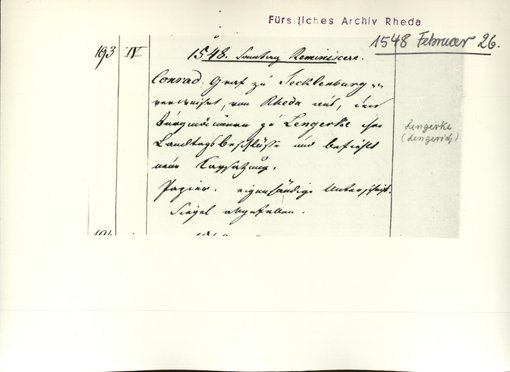 Fürstliches Archiv Rheda
1548 Februar 26.
193 IV 1548. Sonntag Reminiscere.
Conrad Graf zu Tecklenburg
von Rheda aus, den
Burgmännern zu Lengerke
Landtagsbeschlüsse und befiehlt
neue
Lengerke
(Lengerich)
Papier. eigenhändige Unterschrift.
Siegel abgefallen.